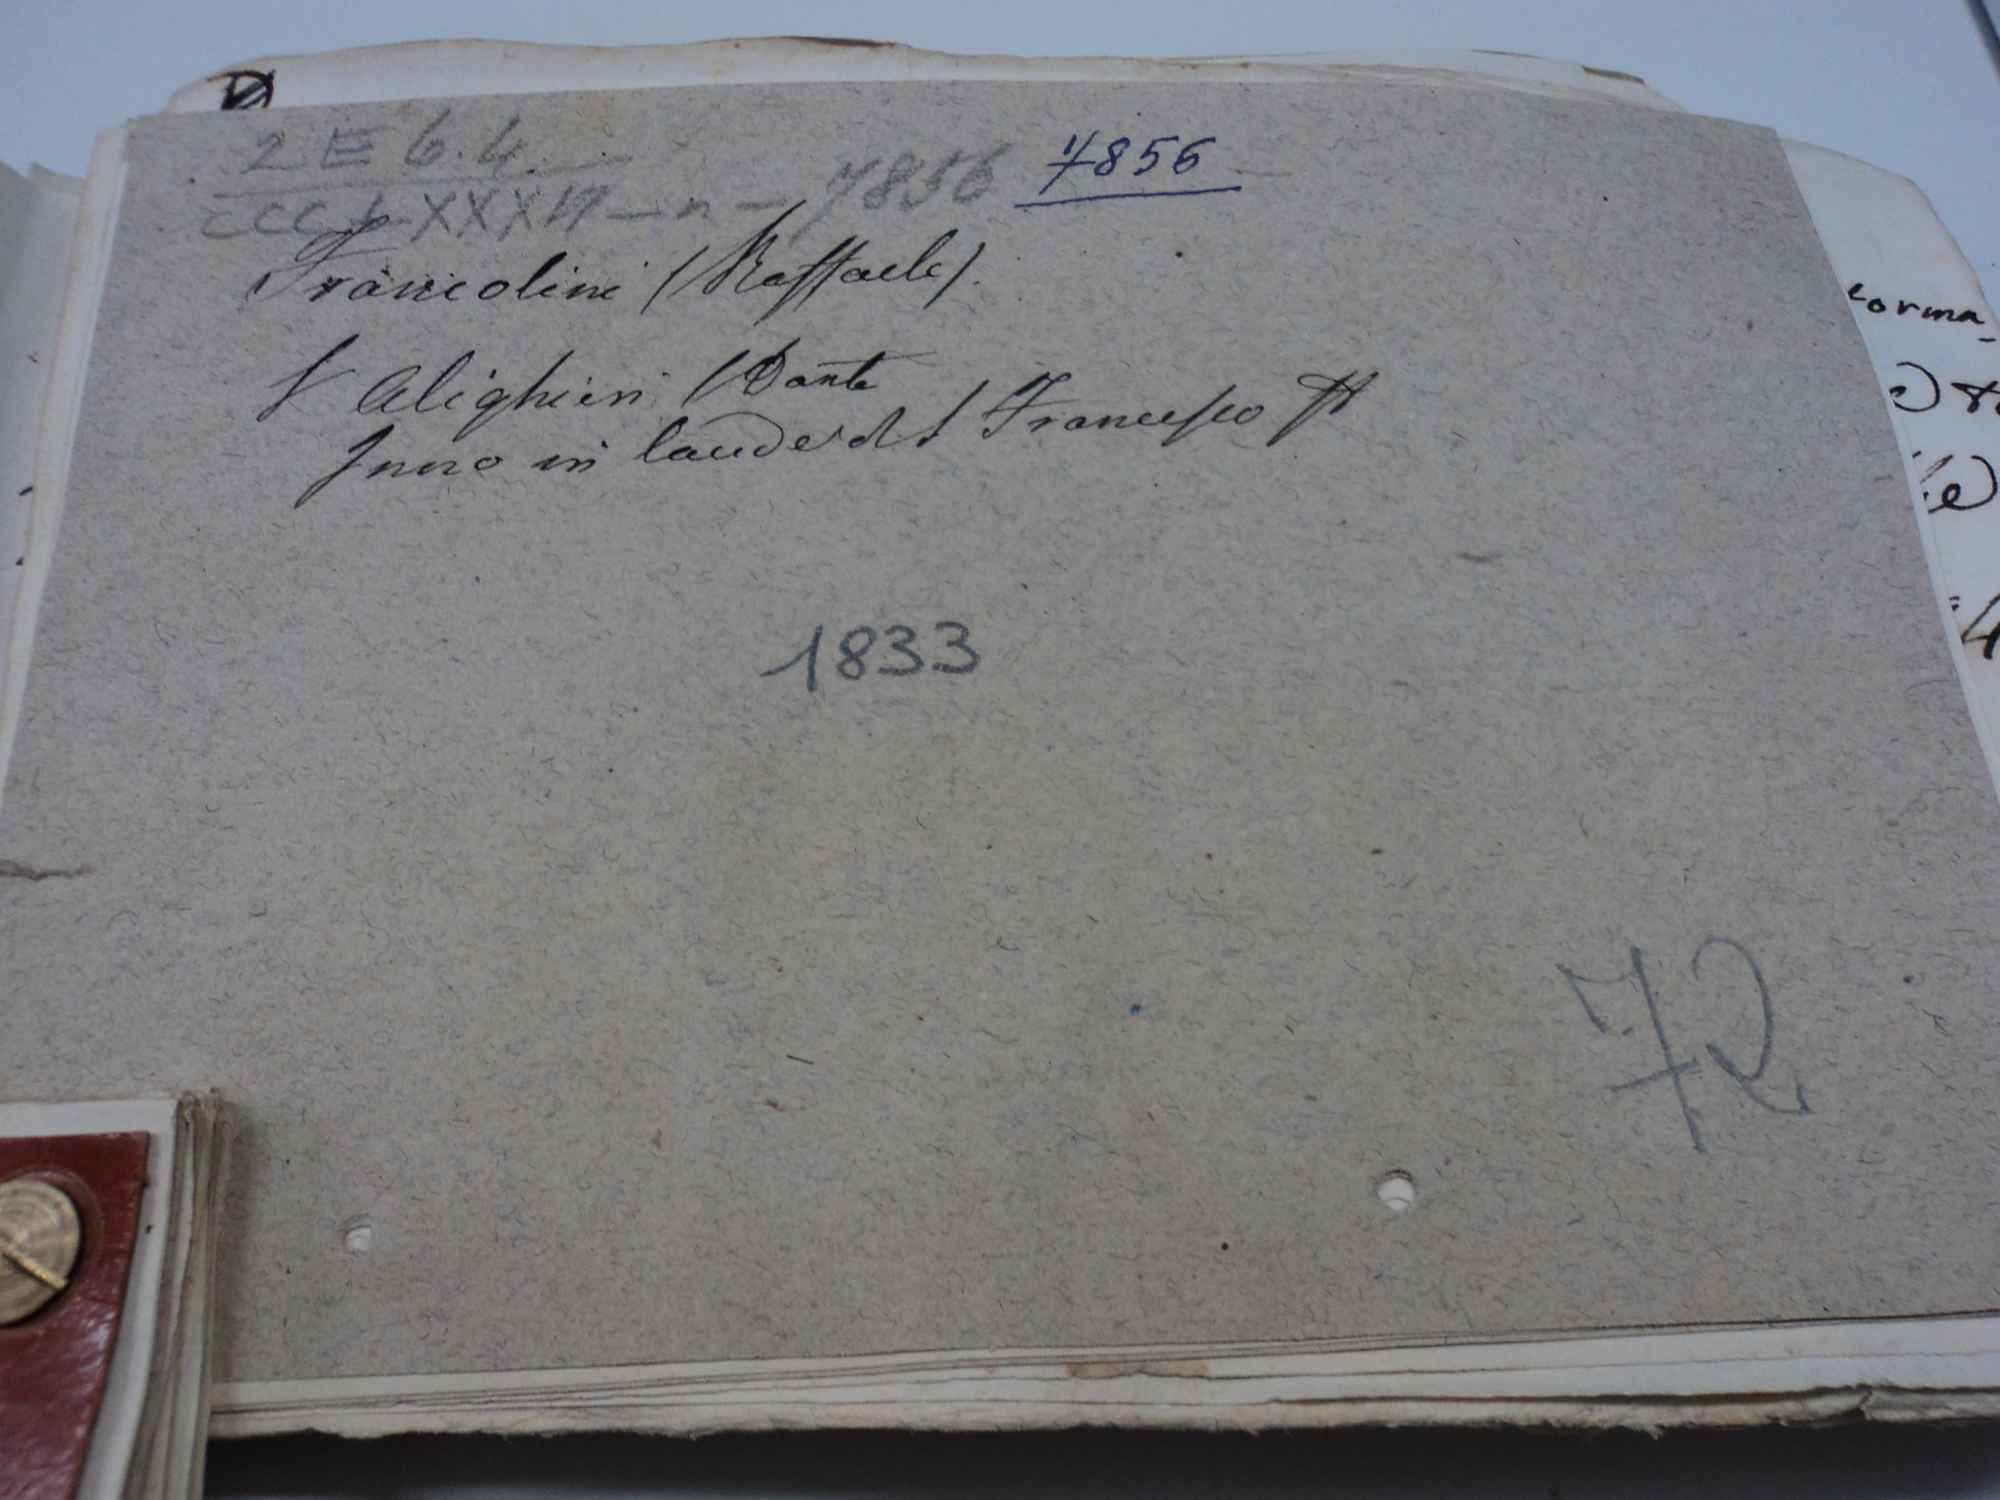 2 E 6.4
7856 7856
Francolini (Raffaele).
V Alighieri (Dante
Inno in laude di S Francesco
1833
72
forma_